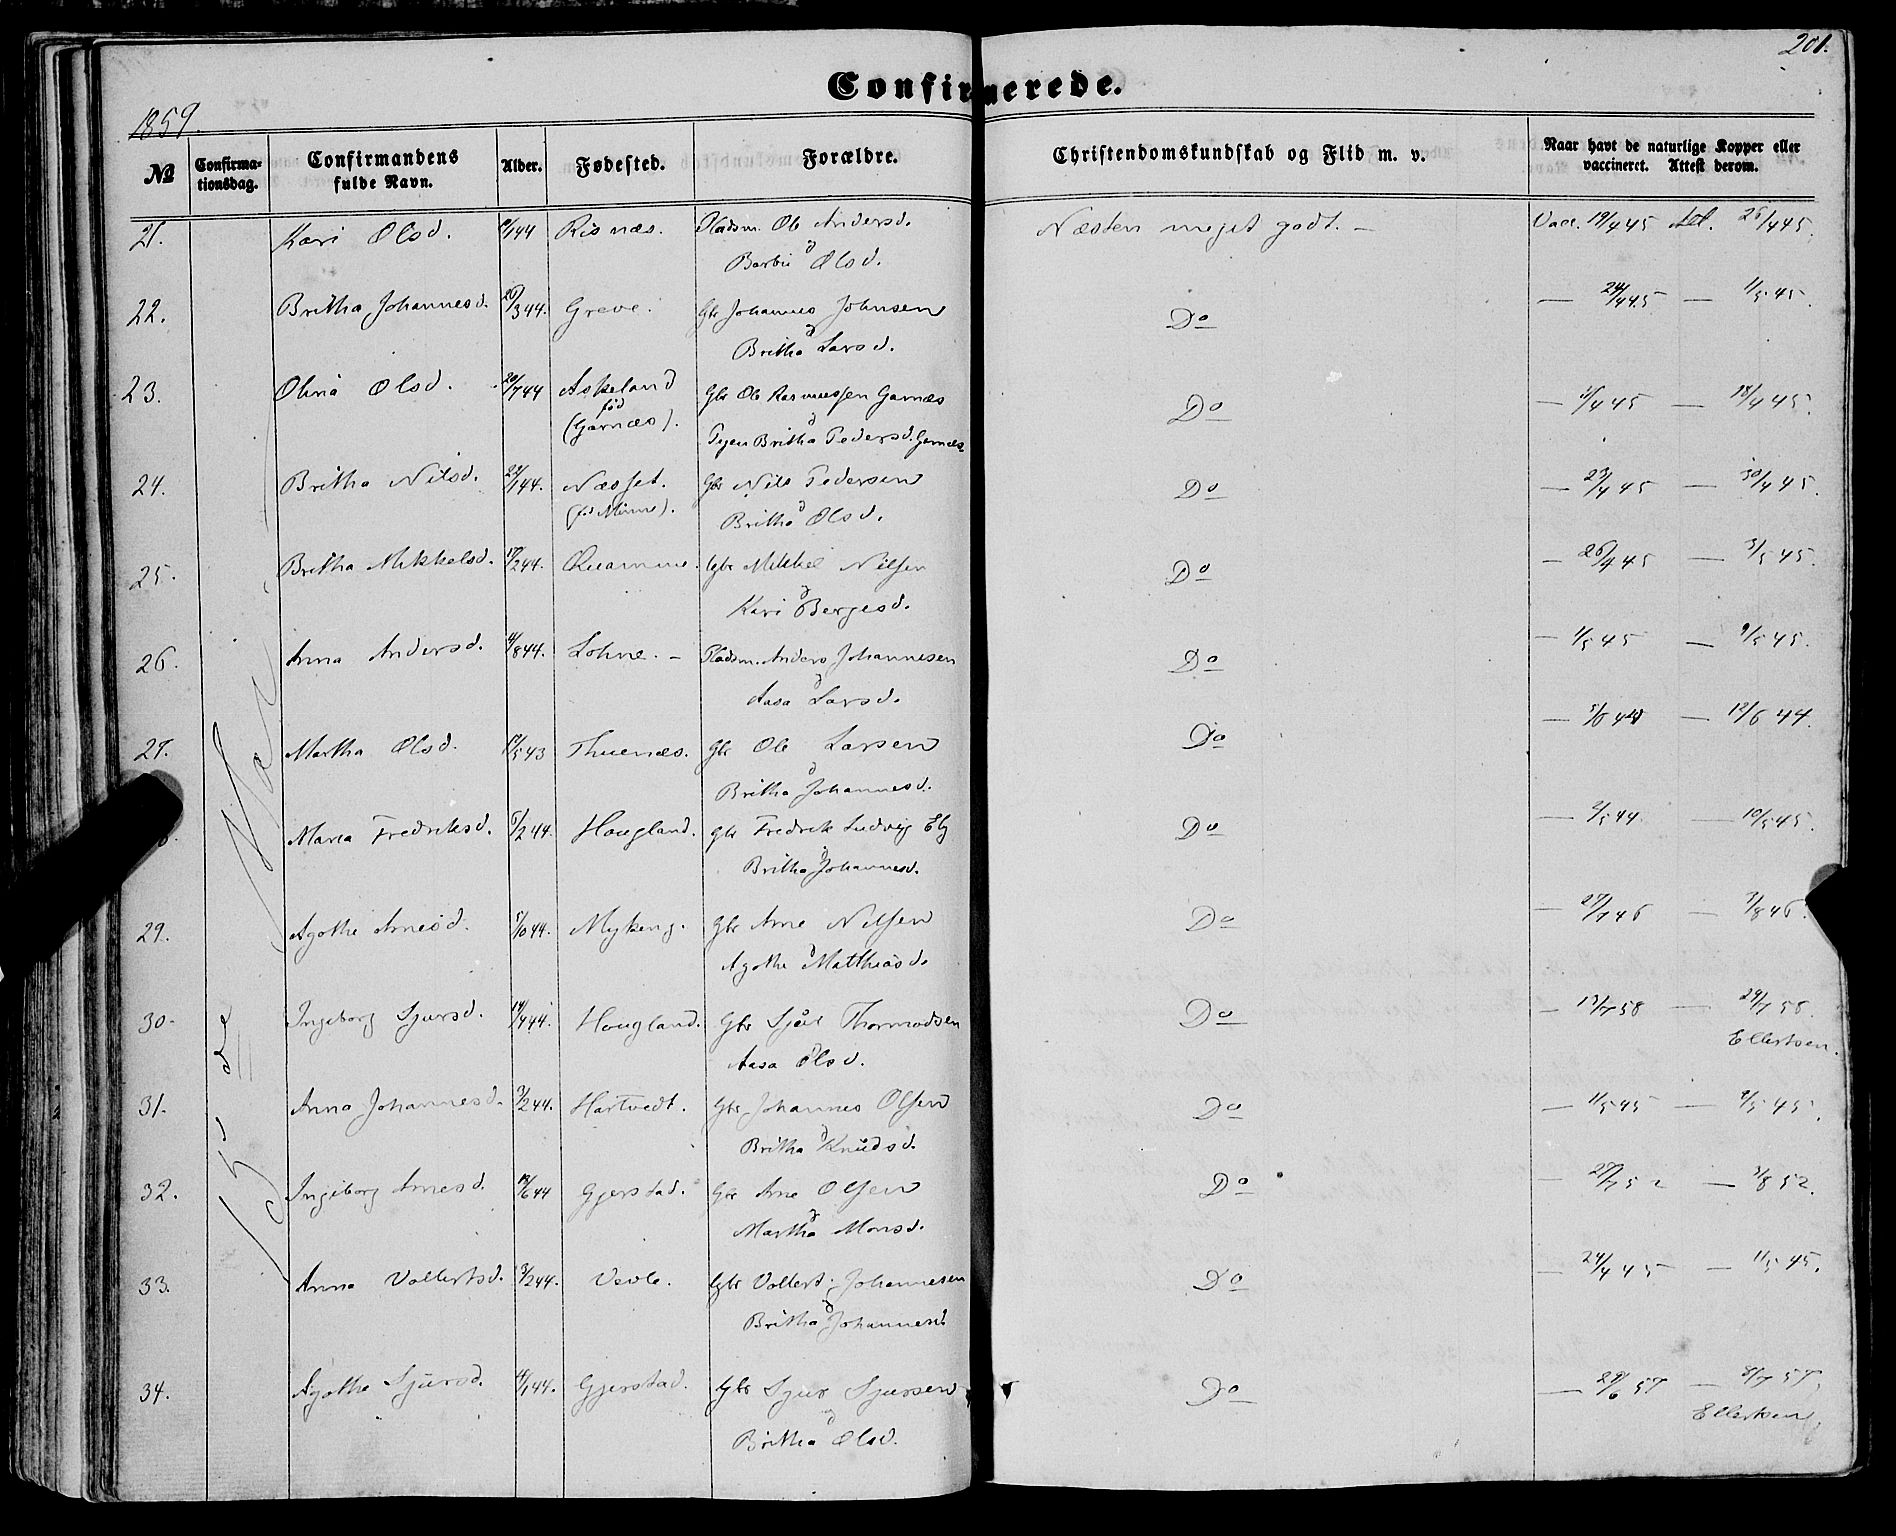 201.
Confirmerede.
1859.
№ Confirma-tionsdag. Confirmandens fulde Navn. Alder. Fødested. Forældre. Christendomskundskab og Flid m. v. Naar havt de naturlige Kopper eller vaccineret. Attest derom.
21. Kari Olsd. Risnæs. Pladsm. Ole Andersd. Næsten meget godt. — Vacc. 19/4 45 Att. 25/4 45.
Barbu Olsd.
22. Britha Johannesd. 26/3 44. Greve. Gbr Johannes Johnsen Do — 24/4 45 — 11/5 45.
Britha Larsd.
23. Olina Olsd. 20/7 44 Askeland Gbr Ole Rasmussen Garnæs Do — 11/4 45 — 18/4 45.
fød
(Garnæs). Pigen Britha Pedersd. Garnæs
24. Britha Nilsd. 22/1 44. Næsset. Gbr Nils Pedersen Do — 23/4 45 — 30/4 45.
Britha Olsd.
25. Britha Mikkelsd. 17/2 44. Quamme. Gbr Mikkel Nilsen Do — 26/4 45 — 3/5 45.
Kari Bergesd.
26. Anna Andersd. 4/8 44. Lohne. — Pladsm. Anders Johannesen Do — 1/5 45 — 9/5 45.
Aasa Larsd.
27. Martha Olsd. Thuenæs. Gbr Ole Larsen Do — 5/6 44 — 12/6 44.
Britha Johannesd.
Maria Fredriksd. 5/2 44. Hougland. Gbr Fredrik Ludvig Do — 2/5 44 — 10/5 45.
Britha Johannesd.
29. Agothe Arnesd. Mykeng. Gbr Arne Nilsen Do — 27/7 46 — 3/8 46.
Agothe Matthiasd.
30. Ingeborg Sjursd. 14/4 44. Hougland. Gbr Sjur Thormodsen Do — 13/7 58 — 29/7 58.
Aasa Olsd. Ellertsen.
31. Anna Johannesd. 3/2 44. Hartvedt. Gbr Johannes Olsen Do — 11/5 45 — 9/5 45.
Britha Knudsd.
32. Ingeborg Arnesd. 12/6 44 Gjerstad. Gbr Arne Olsen Do — 27/7 52 — 3/8 52.
Martha Monsd.
33. Anna Vollertsd. 3/2 44. Vevle. Gbr Vollert Johannesen Do — 24/4 45 — 11/5 45.
Britha Johannesd.
34. Agothe Sjursd. Gjerstad. Gbr Sjur Sjursen Do — 29/6 57 — 8/7 57.
Britha Olsd. Ellertsen